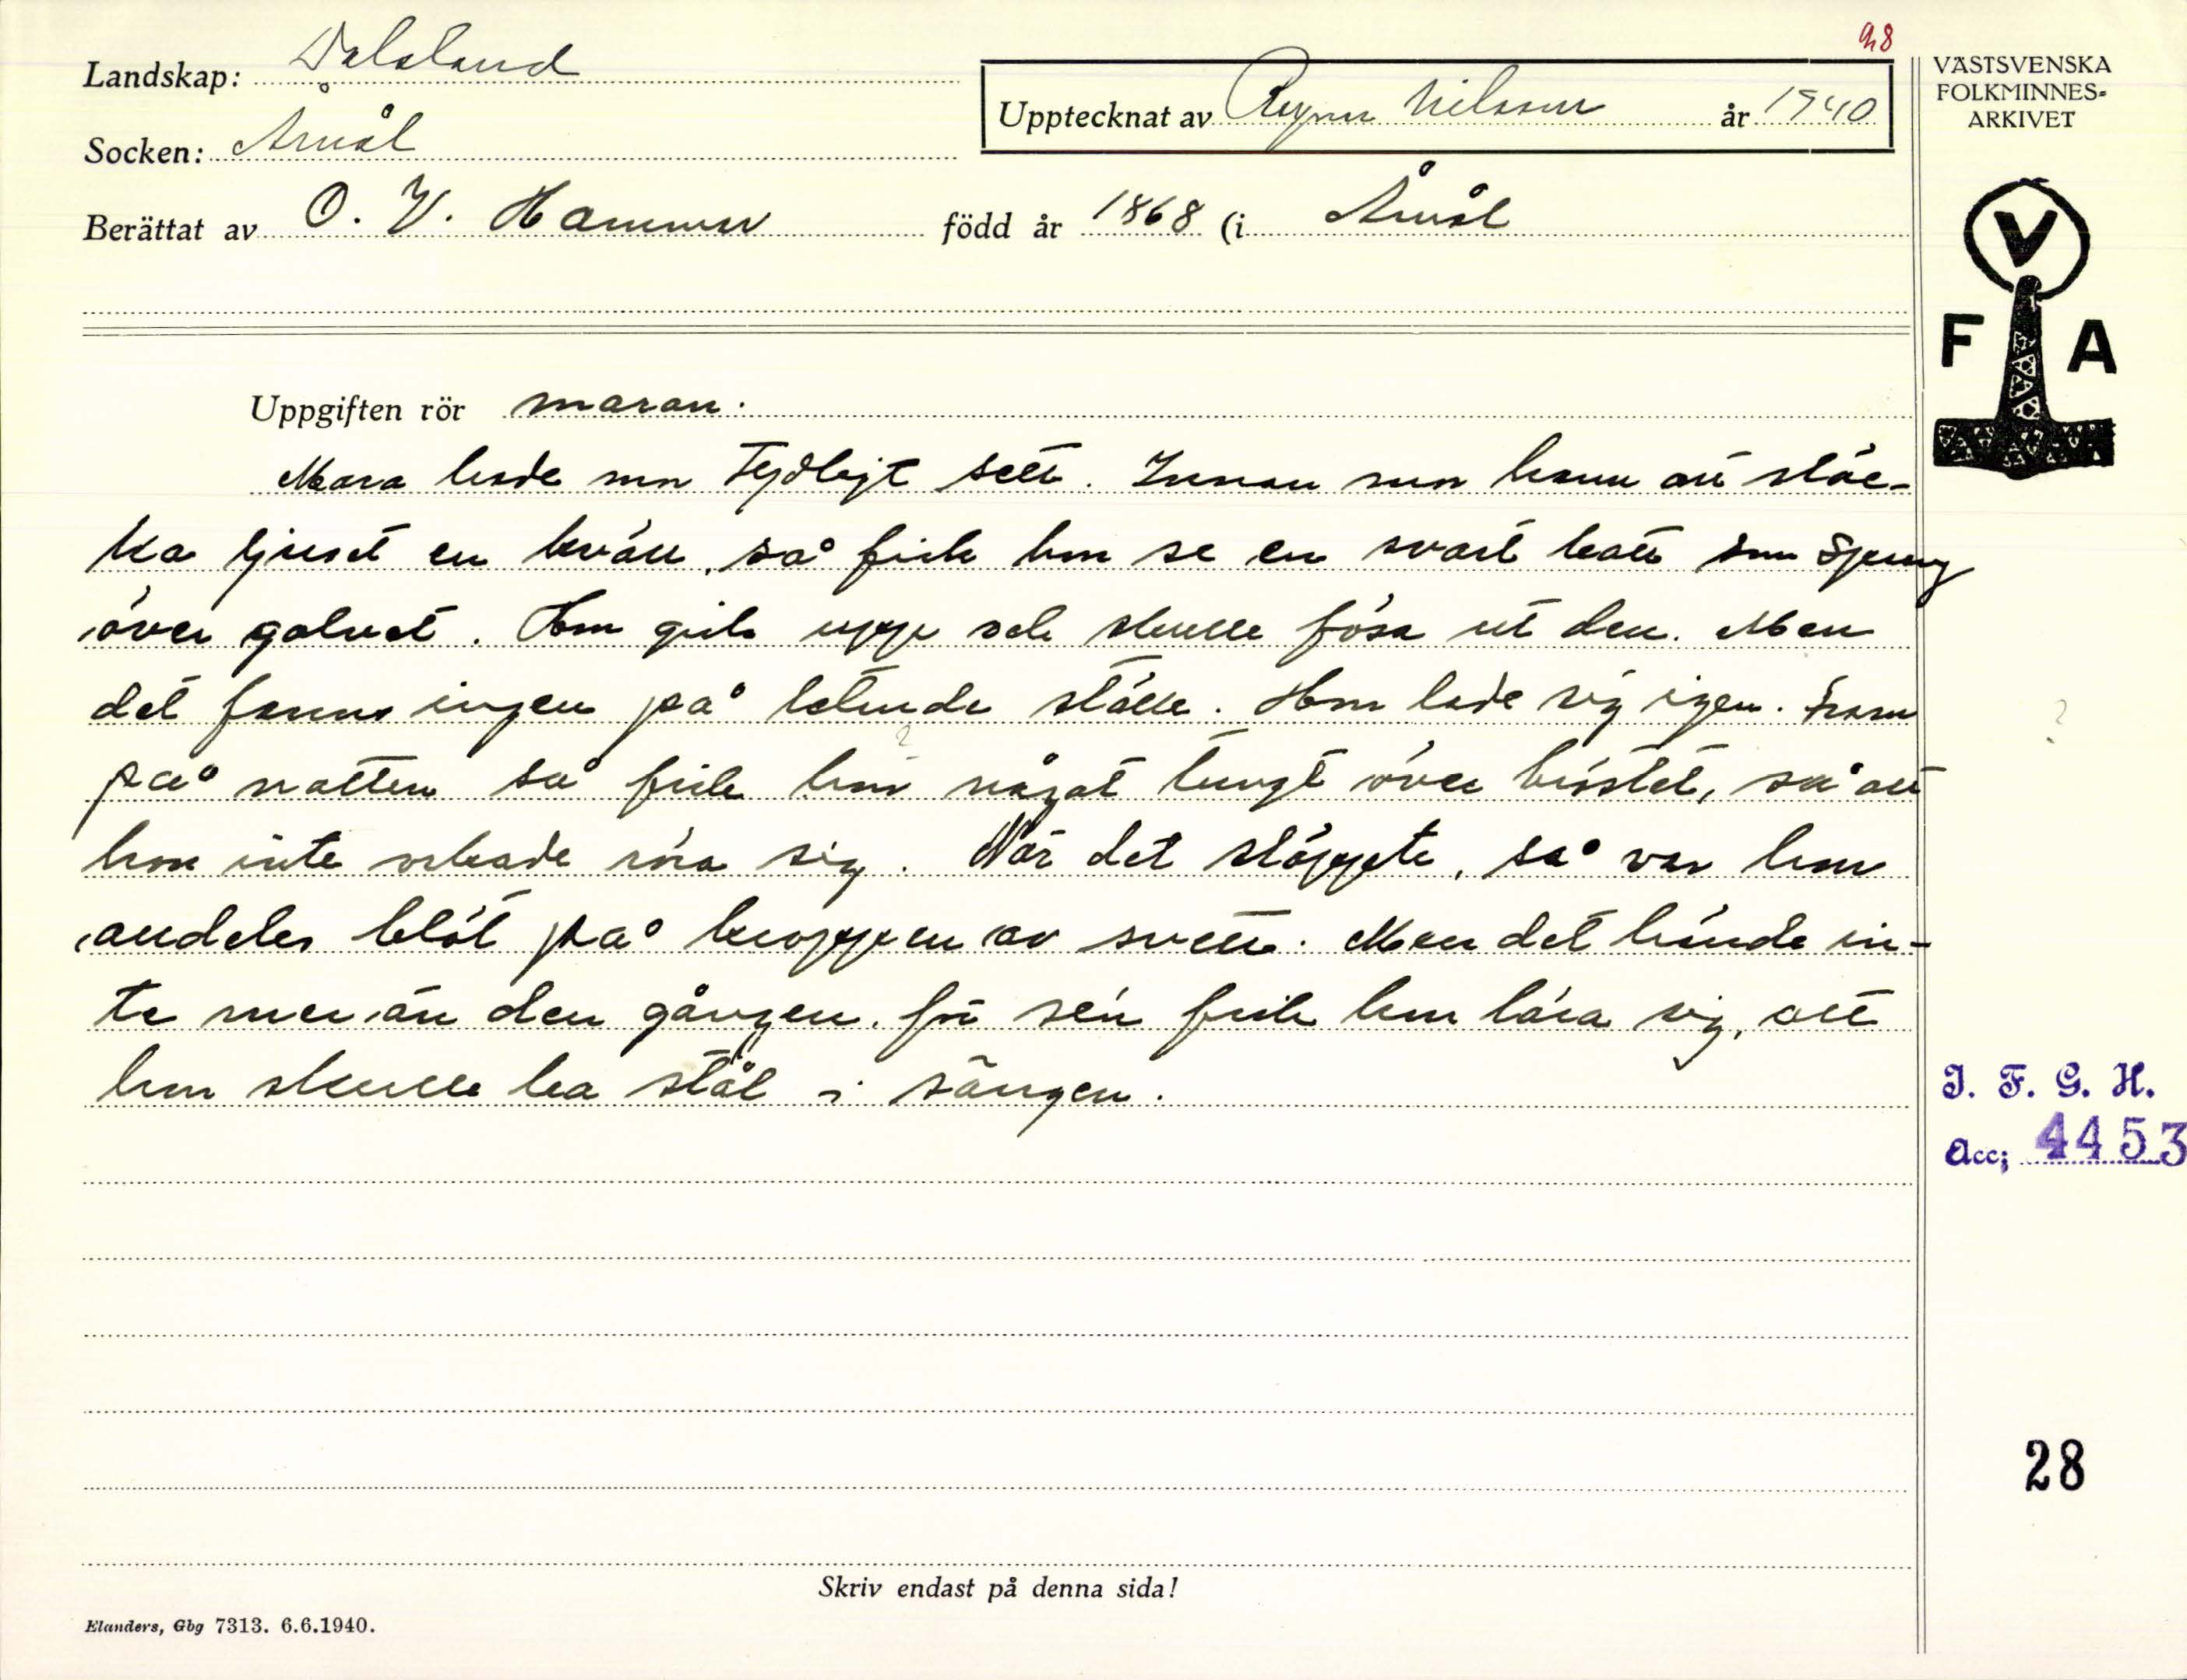 98
Landskap: Dalsland
Upptecknat av Ragnar Nilsson år 1940
VÄSTSVENSKA
FOLKMINNES-
ARKIVET
Socken: Åmål
Berättat av O. V. Hammar född år 1868 (i Åmål
V
F A
Uppgiften rör maran.
Mara hade mor tydligt sett. Innan mor hann att släc-
ka ljuset en kväll, så fick hon se en svart katt som sprang
över golvet. Hon gick upp och skulle fösa ut den. Men
det fanns ingen på letende ställe. Hon lade sig igen. Fram
?
?
på natten så fick hon något tungt över bröstet, så att
hon inte orkade röra sig. När det släppte, så var hon
aldeles blöt på kroppen av svett. Men det hände in-
te mer än den gången, för sen fick hon lära sig, att
hon skulle ha stål i sängen.
I. F. G. H.
Acc; 4453
28
Skriv endast på denna sida!
Elanders, Gbg 7313. 6.6.1940.